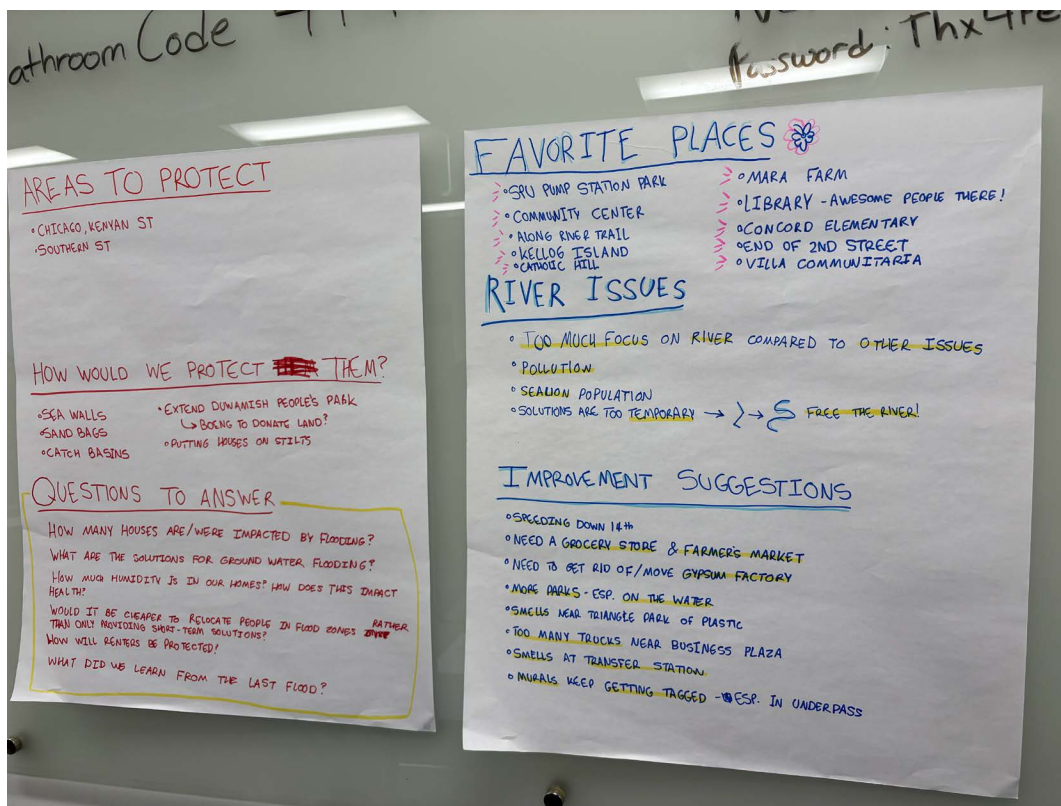 athroom Code
Password: Thx4
AREAS TO PROTECT
•CHICAGO, KENYAN ST
•SOUTHERN ST
HOW WOULD WE PROTECT THEM?
•SEA WALLS
•SAND BAGS
•CATCH BASINS
•EXTEND DUWAMISH PEOPLE'S PARK
↳ BOEING TO DONATE LAND?
•PUTTING HOUSES ON STILTS
QUESTIONS TO ANSWER
HOW MANY HOUSES ARE/WERE IMPACTED BY FLOODING?
WHAT ARE THE SOLUTIONS FOR GROUND WATER FLOODING?
HOW MUCH HUMIDITY IS IN OUR HOMES? HOW DOES THIS IMPACT
HEALTH?
WOULD IT BE CHEAPER TO RELOCATE PEOPLE IN FLOOD ZONES RATHER
THAN ONLY PROVIDING SHORT-TERM SOLUTIONS?
HOW WILL RENTERS BE PROTECTED?
WHAT DID WE LEARN FROM THE LAST FLOOD?
FAVORITE PLACES
•SPU PUMP STATION PARK
•COMMUNITY CENTER
•ALONG RIVER TRAIL
•KELLOG ISLAND
•CATHOLIC HILL
•MARA FARM
•LIBRARY - AWESOME PEOPLE THERE!
•CONCORD ELEMENTARY
•END OF 2ND STREET
•VILLA COMMUNITARIA
RIVER ISSUES
•TOO MUCH FOCUS ON RIVER COMPARED TO OTHER ISSUES
•POLLUTION
•SEALION POPULATION
•SOLUTIONS ARE TOO TEMPORARY → → FREE THE RIVER!
IMPROVEMENT SUGGESTIONS
•SPEEDING DOWN 14th
•NEED A GROCERY STORE & FARMER'S MARKET
•NEED TO GET RID OF/MOVE GYPSUM FACTORY
•MORE PARKS - ESP. ON THE WATER
•SMELLS NEAR TRIANGLE PARK OF PLASTIC
•TOO MANY TRUCKS NEAR BUSINESS PLAZA
•SMELLS AT TRANSFER STATION
•MURALS KEEP GETTING TAGGED - ESP. IN UNDERPASS